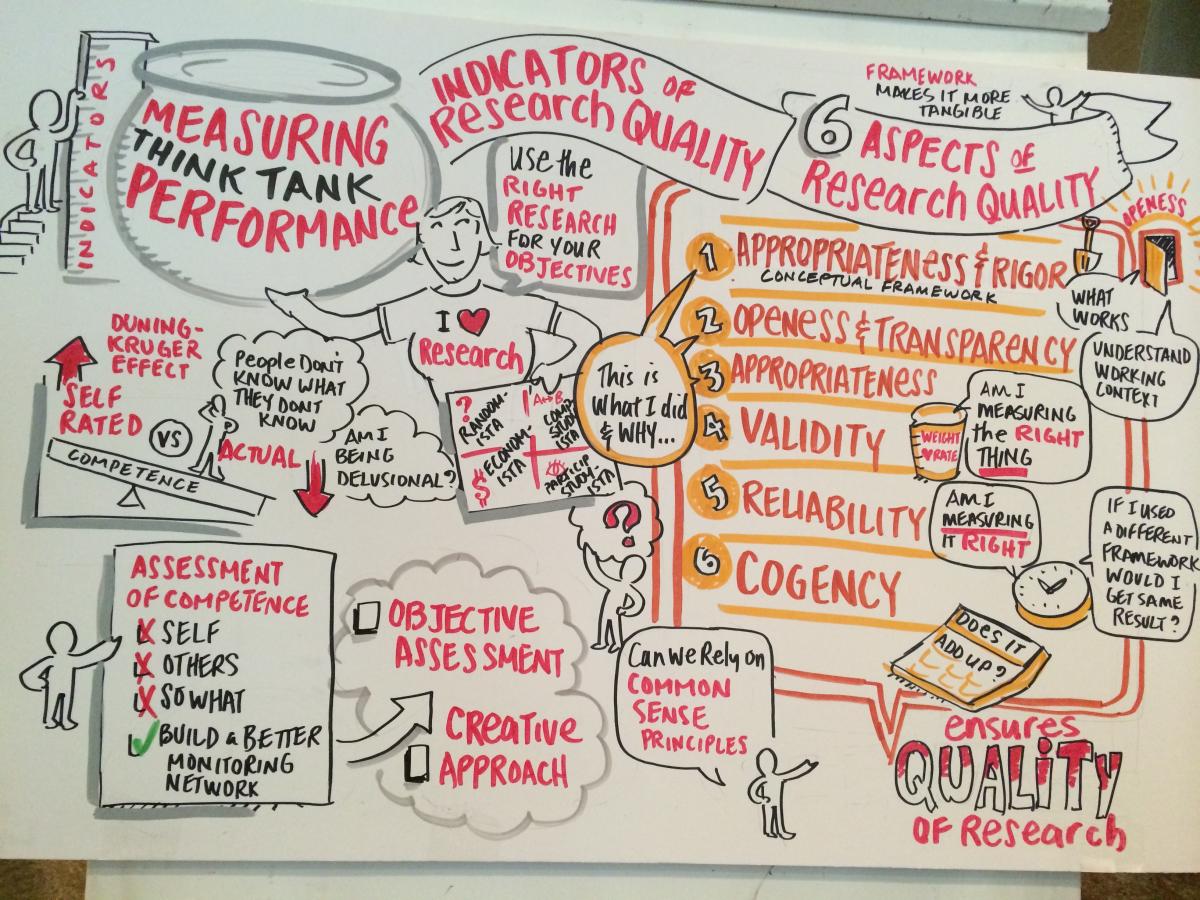 INDICATORS
MEASURING
THINK TANK
PERFORMANCE
INDICATORS OF
Research QUALITY
USE the
RIGHT
RESEARCH
FOR YOUR
OBJECTIVES
I ♥
Research
?
RANDOM-
ISTA
A↔B
COMP
STUD
ISTA
$
ECONOM-
ISTA
PARTICIP
STUDY
ISTA
DUNING-
KRUGER
EFFECT
SELF
RATED
VS
ACTUAL
COMPETENCE
PEOPLE DON'T
KNOW WHAT
THEY DONT
KNOW
AM I
BEING
DELUSIONAL?
ASSESSMENT
OF COMPETENCE
X SELF
X OTHERS
X SO WHAT
✓ BUILD a BETTER
MONITORING
NETWORK
OBJECTIVE
ASSESSMENT
CREATIVE
APPROACH
FRAMEWORK
MAKES IT MORE
TANGIBLE
6 ASPECTS OF
Research QUALITY
This is
What I did
& WHY...
1 APPROPRIATENESS & RIGOR
CONCEPTUAL FRAMEWORK
2 OPENESS & TRANSPARENCY
3 APPROPRIATENESS
4 VALIDITY
5 RELIABILITY
6 COGENCY
OPENESS
WHAT
WORKS
UNDERSTAND
WORKING
CONTEXT
WEIGHT
♥ RATE
AM I
MEASURING
the RIGHT
THING
AM I
MEASURING
IT RIGHT
IF I USED
A DIFFERENT
FRAMEWORK
WOULD I
GET SAME
RESULT?
DOES IT
ADD UP?
?
Can We Rely on
COMMON
SENSE
PRINCIPLES
ensures
QUALiTY
OF Research